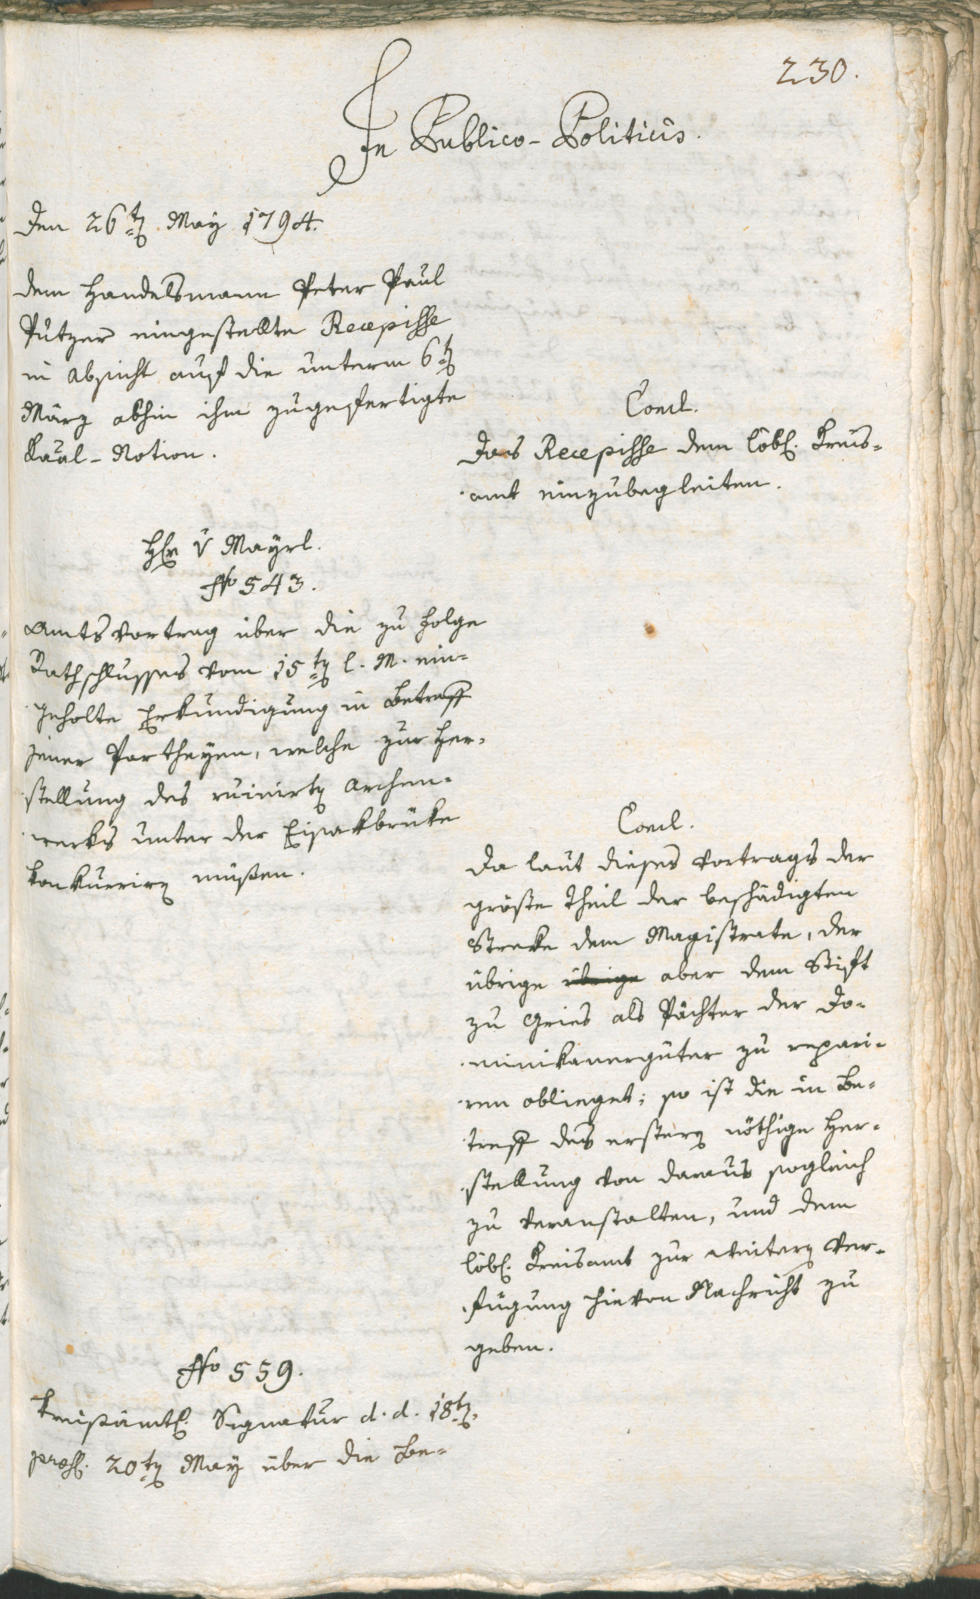 230.
In Publico-Politicis.
Den 26ten May 1794.
Dem Handelsmann Peter Paul
Putzer eingestellte Recepisse
in Absicht auf die unterm 6t
März abhin ihm zugefertigte
Raal-Notion.
Concl.
Das Recepisse dem löbl. Kreis-
amt einzubegleiten.
Hr v Mayrl.
No 543.
Amtsvortrag über die zu Folge
Rathschlusses vom 15ten l. M. ein-
geholte Erkundigung in Betreff
jener Partheyen, welche zur Her-
stellung des ruinirten Archen-
werks unter der Eisakbrüke
konkuriren müßen.
Concl.
Da laut dieses Vortrags der
größte Theil der beschädigten
Streke dem Magistrate, der
übrige übrige aber dem Stift
zu Gries als Pächter der Do-
minikanergüter zu repari-
ren oblieget; so ist die in Be-
treff des ersten nöthige Her-
stellung von daraus sogleich
zu veranstalten, und dem
löbl. Kreisamt zur weitern Ver-
fügung hievon Nachricht zu
geben.
No 559.
Kreisämtl. Signatur d. d. 18t.
præs. 20ten May über die Be-